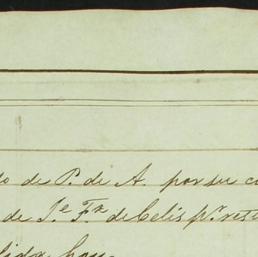 do de P. de A. por su c
de J.e Fr. de Celis p.r rest
lida hoy